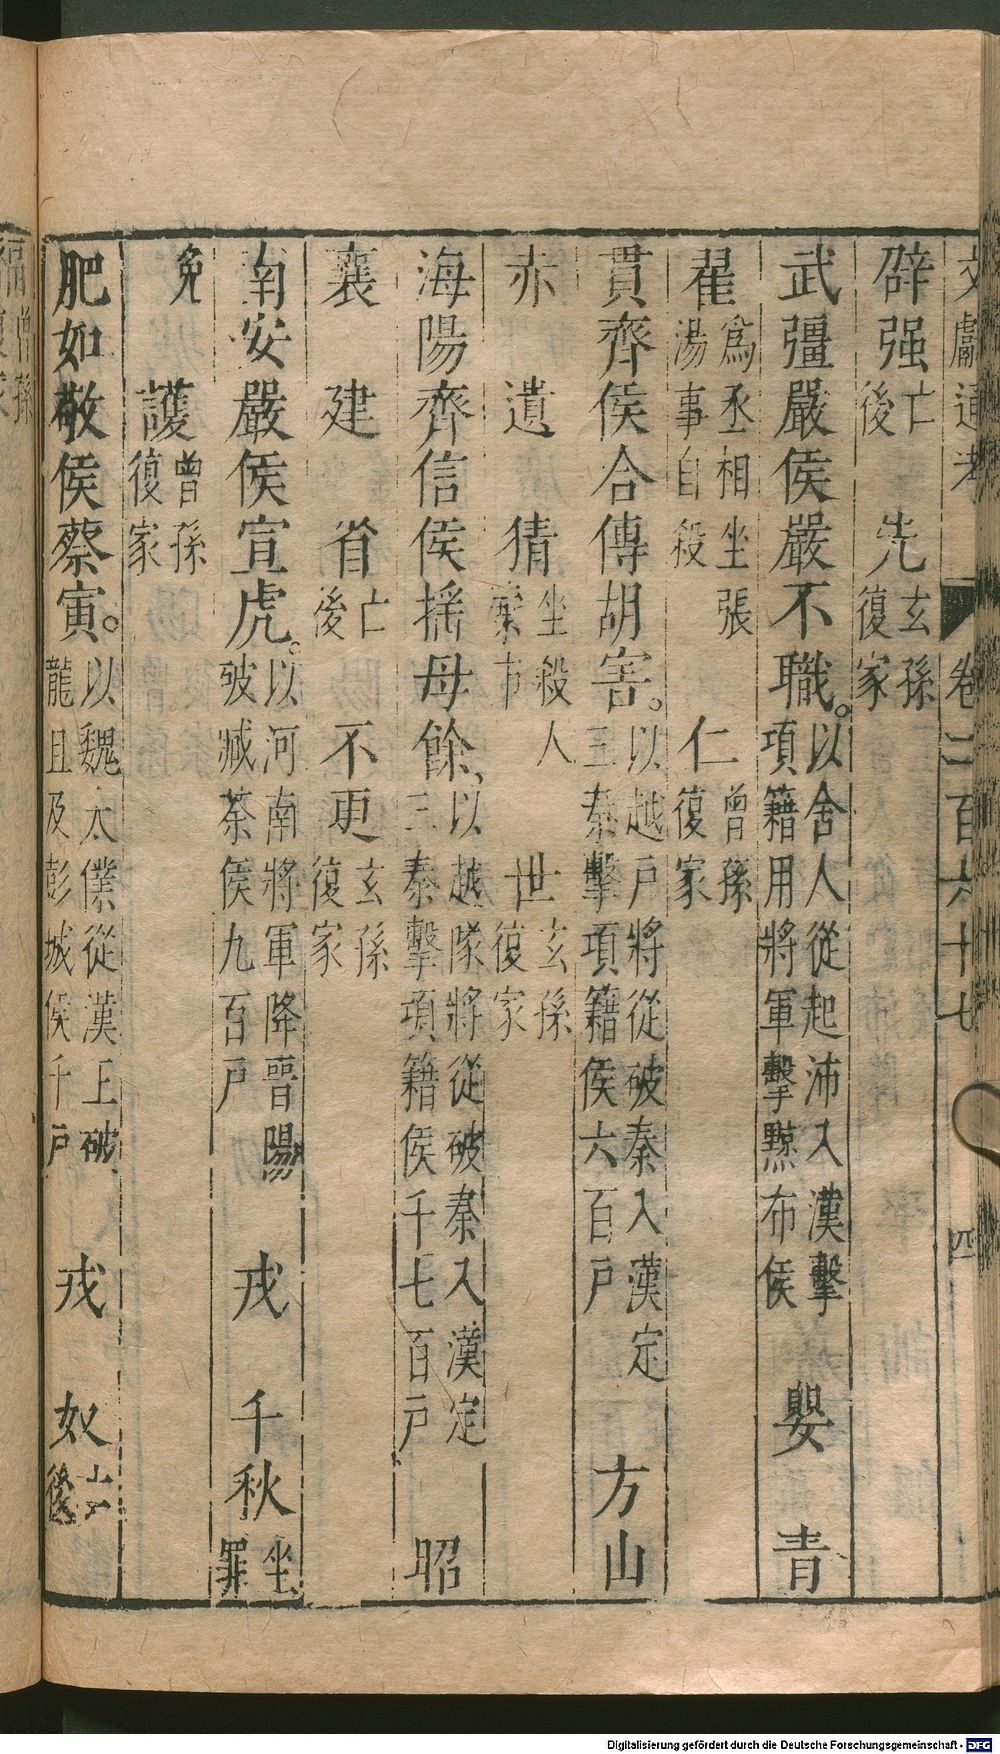 文獻通考 卷二百六十七 四
辟强亡後 先玄孫復家
武彊嚴侯嚴不職。以舍人從起沛入漢擊項籍用將軍擊黥布侯 嬰 青
翟爲丞相坐張湯事自殺 仁曾孫復家
貫齊侯合傳胡害。以越戶將從破秦入漢定三秦擊項籍侯六百戶 方山
赤 遺 猜坐殺人棄市 世玄孫復家
海陽齊信侯揺母餘、以越隊將從破秦入漢定三秦擊項籍侯千七百戶 昭
襄 建 省亡後 不更玄孫復家
南安嚴侯宣虎。以河南將軍降晉陽破臧荼侯九百戶 戎 千秋坐罪
免 護曾孫復家
肥如敬侯蔡寅。以魏太僕從漢王破龍且及彭城侯千戶 戎 奴亡後
Digitalisierung gefördert durch die Deutsche Forschungsgemeinschaft - DFG